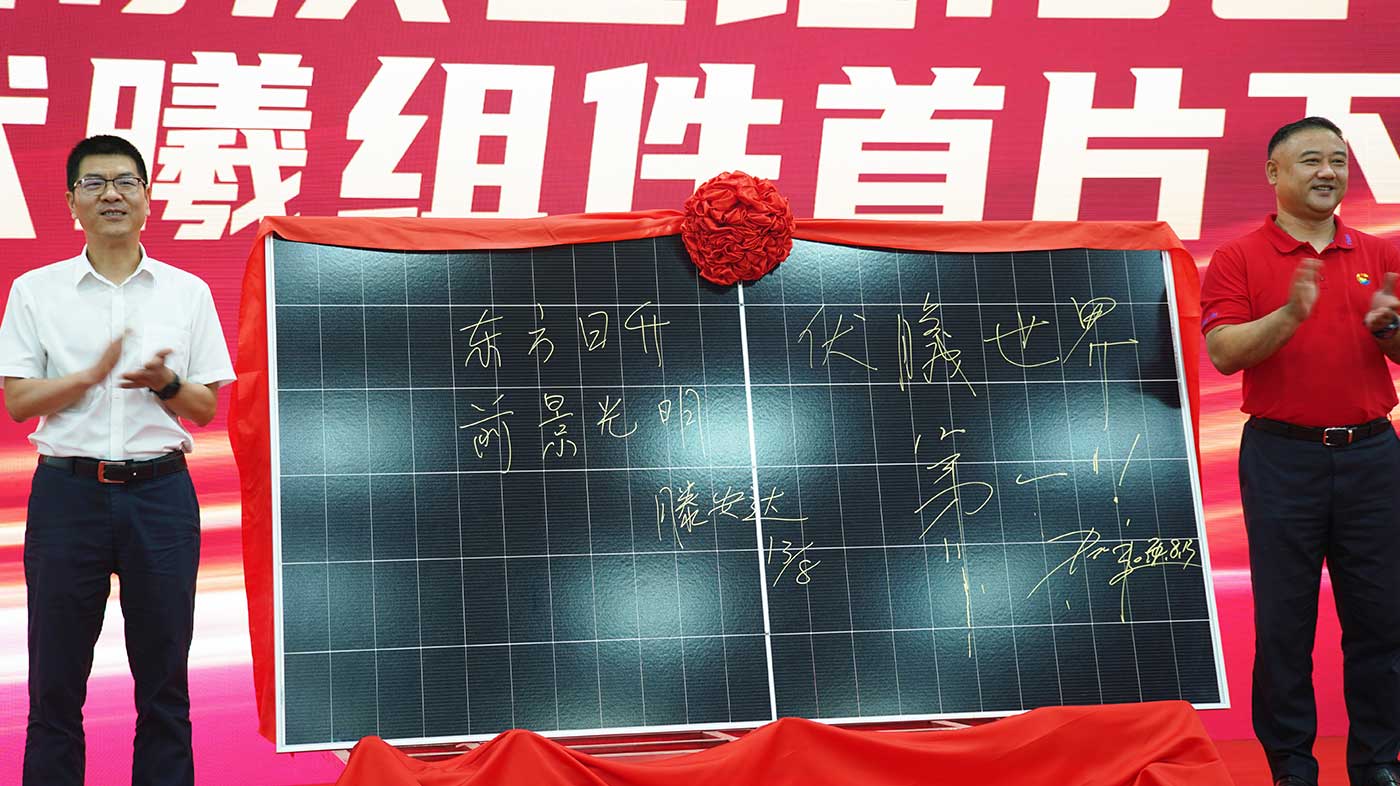 曦组件首片下
东方日升
前景光明
滕安达
13/8
伏曦世界
第一!!